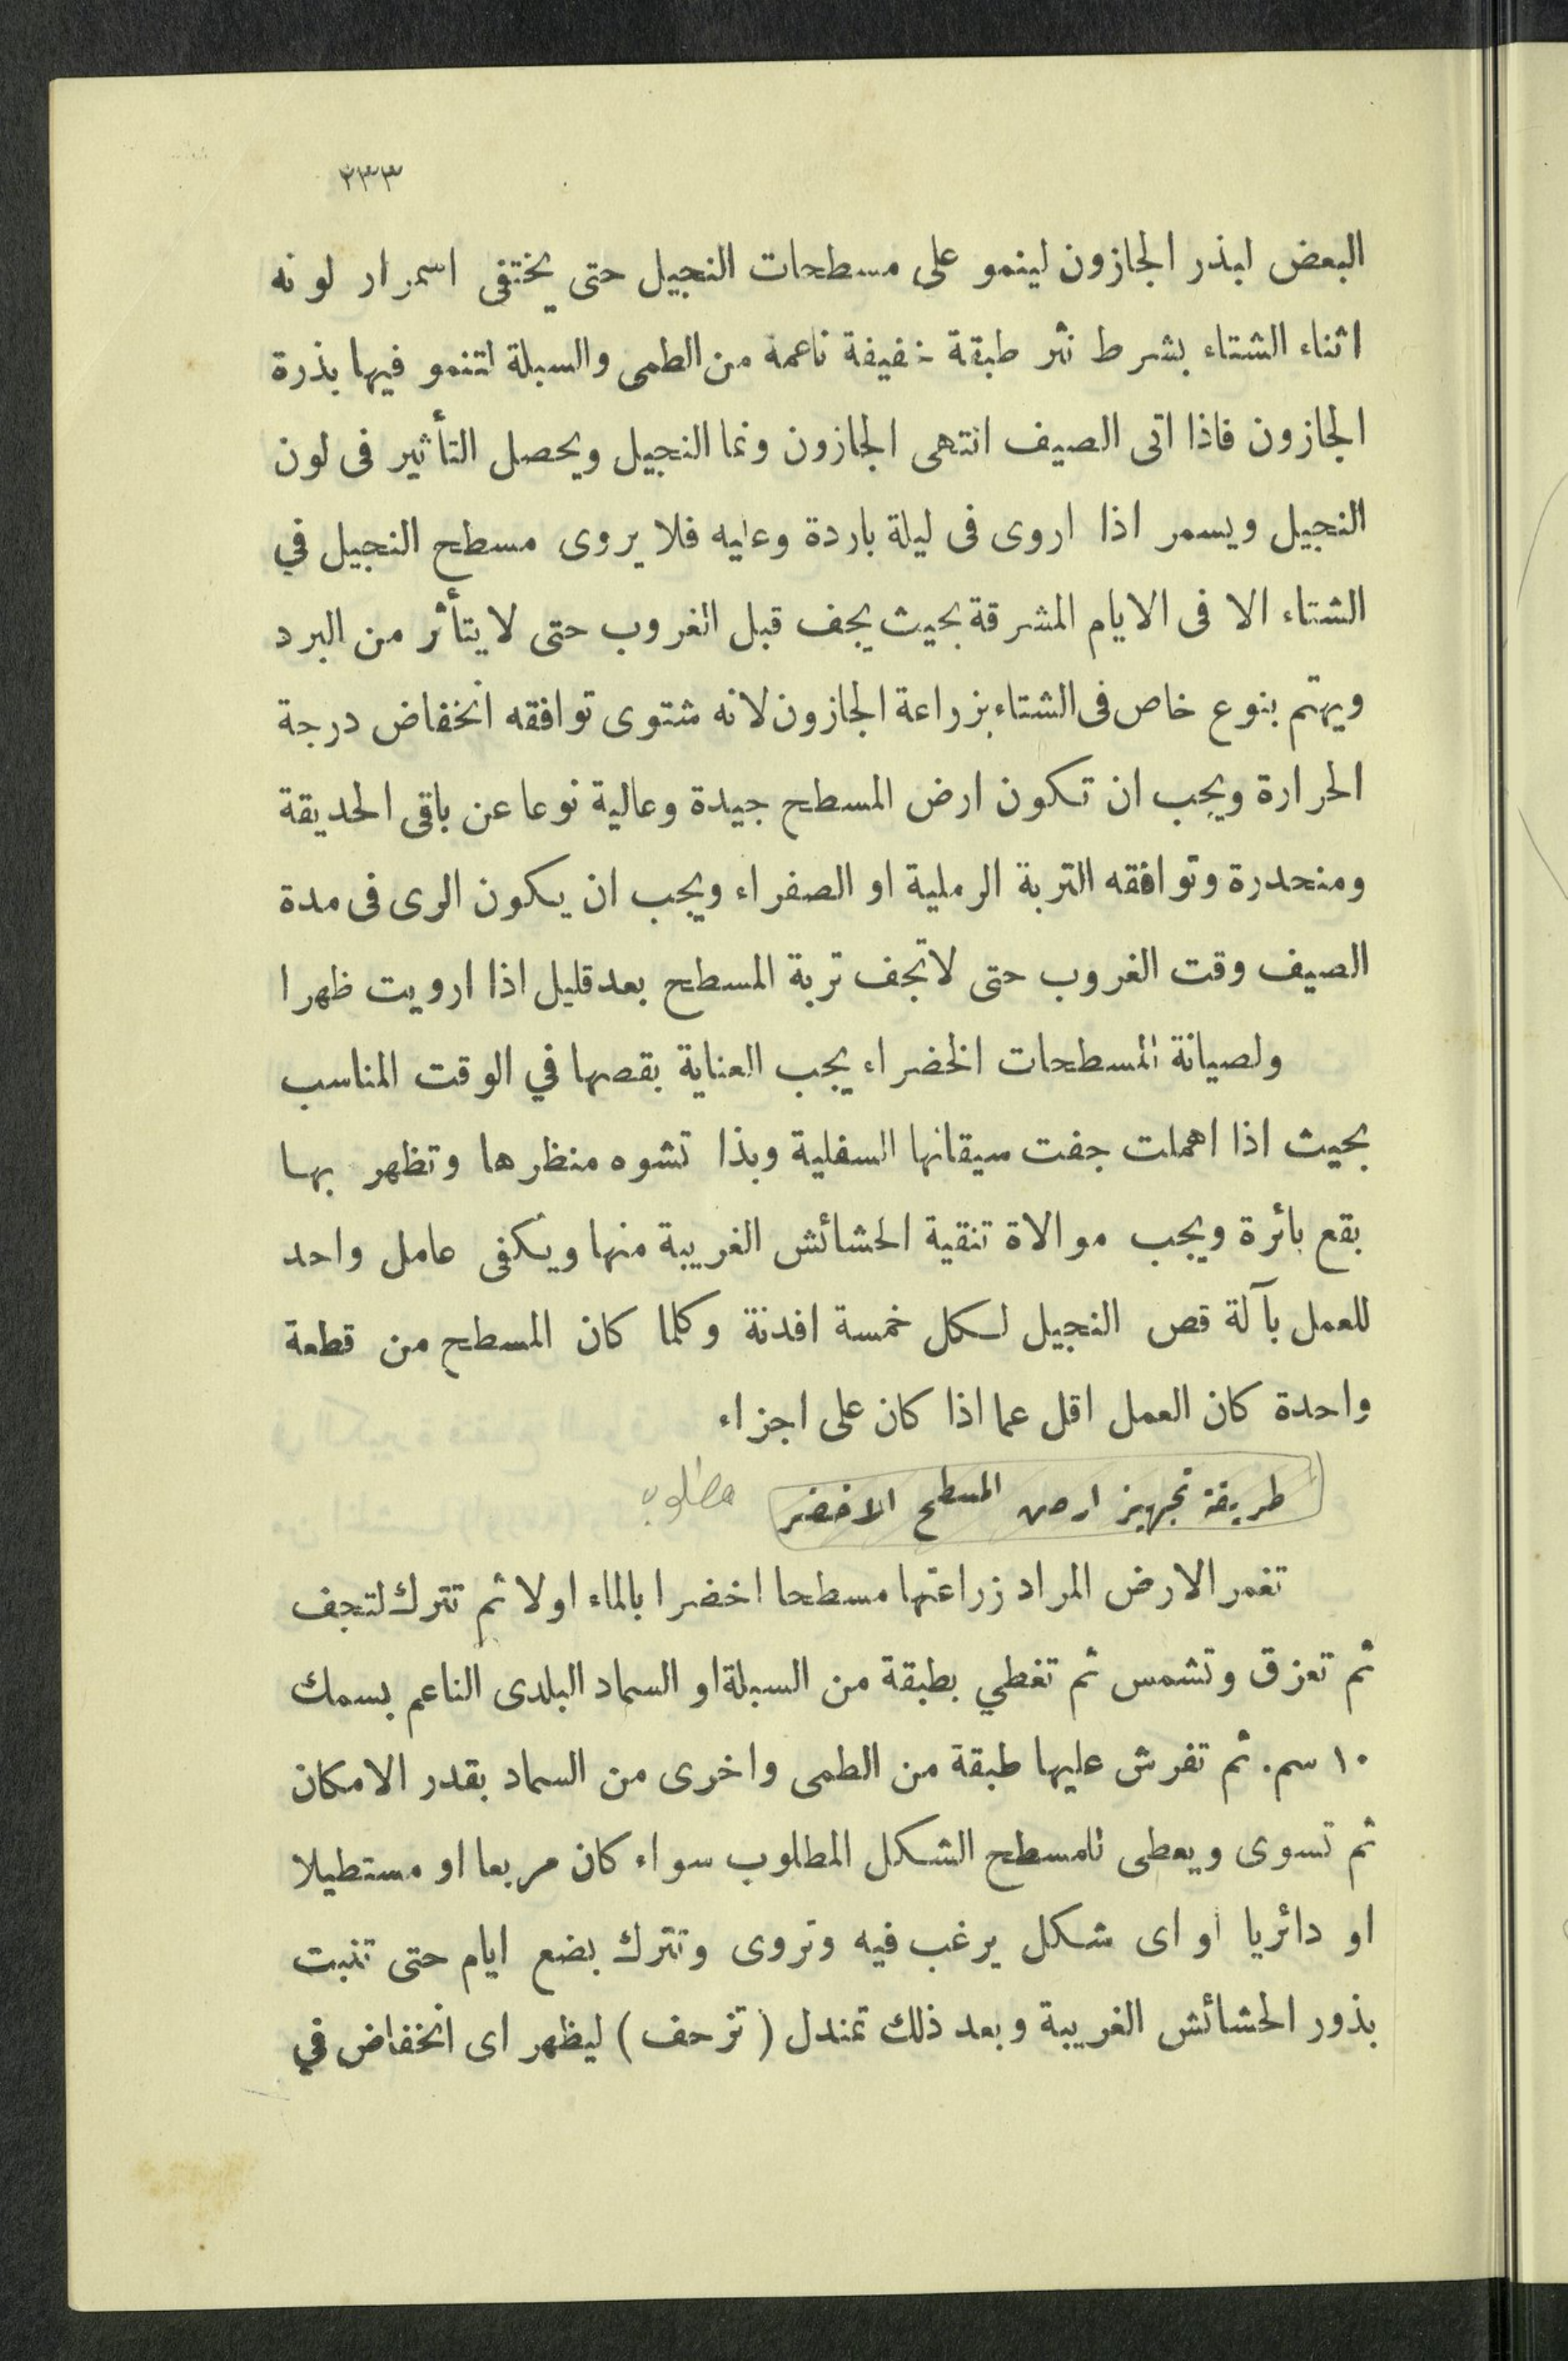 ٢٣٣
البعض لبذر الجازون لينمو على مسطحات النجيل حتى يختفى اسمرار لونه
اثناء الشتاء بشرط نثر طبقة خفيفة ناعمة من الطمى والسبلة لتنمو فيها بذرة
الجازون فاذا اتى الصيف انتهى الجازون ونما النجيل ويحصل التأثير فى لون
النجيل ويسمر اذا اروى فى ليلة باردة وعليه فلا يروى مسطح النجيل في
الشتاء الا فى الايام المشرقة بحيث يجف قبل الغروب حتى لا يتأثر من البرد
ويهتم بنوع خاص فى الشتاء بزراعة الجازون لانه شتوى توافقه انخفاض درجة
الحرارة ويجب ان تكون ارض المسطح جيدة وعالية نوعا عن باقى الحديقة
ومنحدرة وتوافقه التربة الرملية او الصفراء ويجب ان يكون الرى فى مدة
الصيف وقت الغروب حتى لا تجف تربة المسطح بعد قليل اذا ارويت ظهرا
ولصيانة المسطحات الخضراء يجب العناية بقصها في الوقت المناسب
بحيث اذا اهملت جفت سيقانها السفلية وبذا تشوه منظرها وتظهر بها
بقع بائرة ويجب موالاة تنقية الحشائش الغريبة منها ويكفى عامل واحد
للعمل بآلة قص النجيل لكل خمسة افدنة وكلما كان المسطح من قطعة
واحدة كان العمل اقل عما اذا كان على اجزاء
طريقة تجهيز ارض المسطح الاخضر مطلوب
تغمر الارض المراد زراعتها مسطحا اخضرا بالماء اولا ثم تترك لتجف
ثم تعزق وتشمس ثم تغطي بطبقة من السبلة او السماد البلدى الناعم بسمك
١٠ سم. ثم تفرش عليها طبقة من الطمى واخرى من السماد بقدر الامكان
ثم تسوى ويعطى للمسطح الشكل المطلوب سواء كان مربعا او مستطيلا
او دائريا او اى شكل يرغب فيه وتروى وتترك بضع ايام حتى تنبت
بذور الحشائش الغريبة وبعد ذلك تمندل (تزحف) ليظهر اى انخفاض في